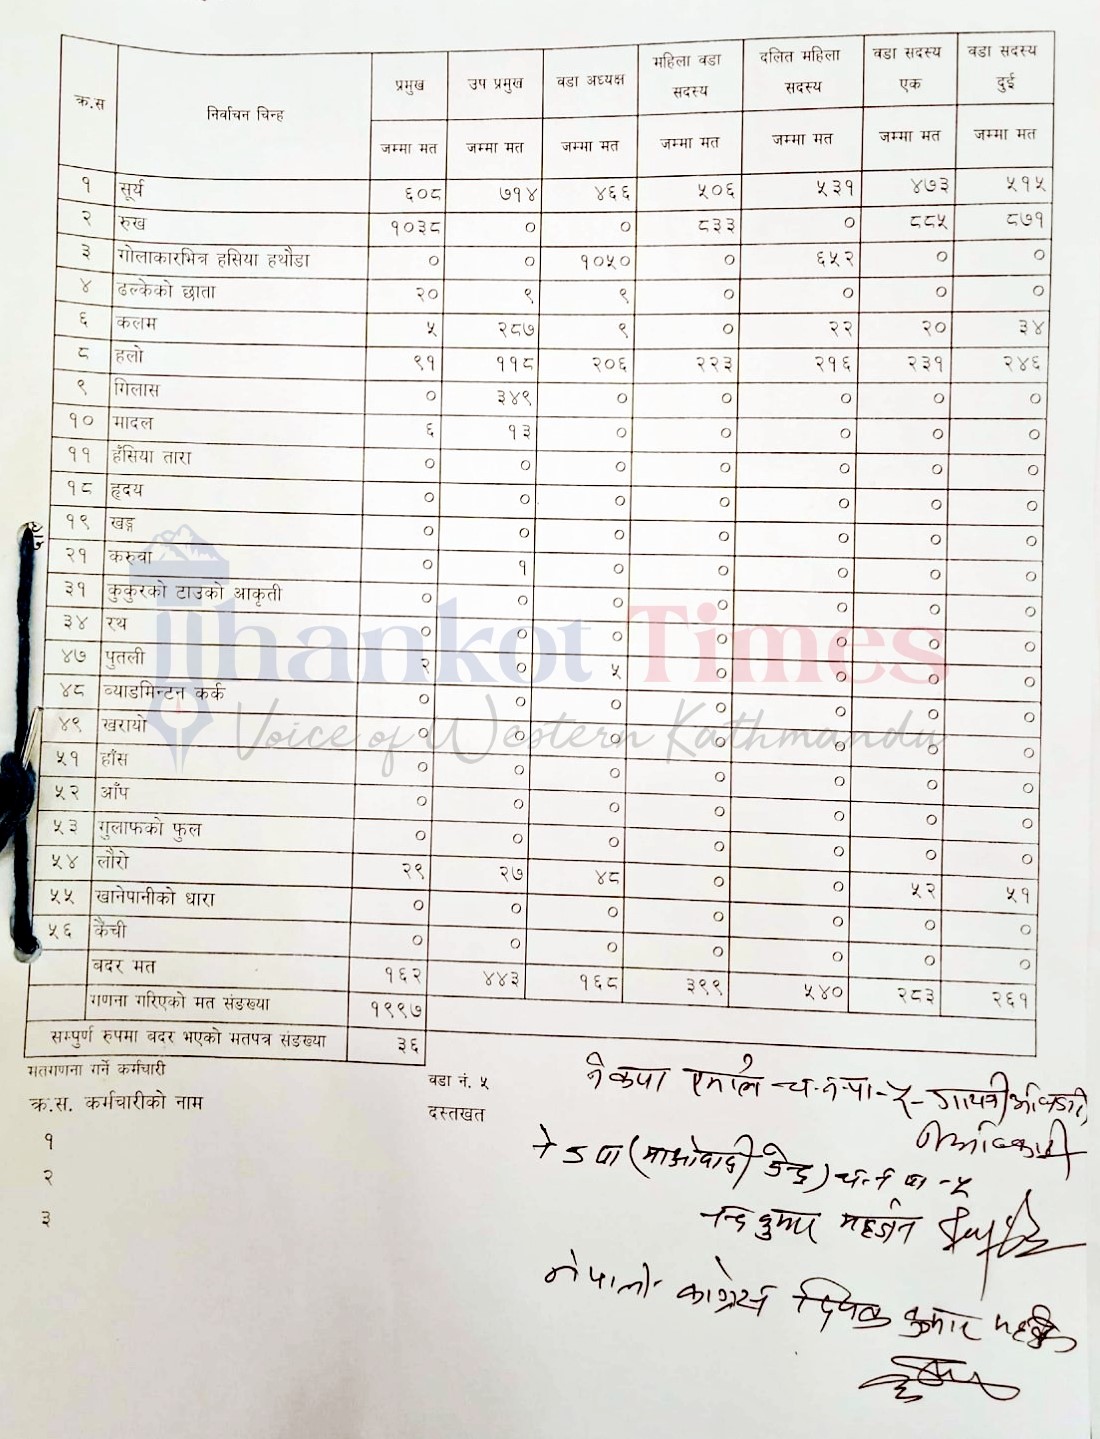 क्र.स निर्वाचन चिन्ह प्रमुख उप प्रमुख वडा अध्यक्ष महिला वडा सदस्य दलित महिला सदस्य वडा सदस्य एक वडा सदस्य दुई
जम्मा मत जम्मा मत जम्मा मत जम्मा मत जम्मा मत जम्मा मत जम्मा मत
१ सूर्य ६०८ ७१४ ४६६ ५०६ ५३१ ४७३ ५१५
२ रुख १०३८ ० ० ८३३ ० ८८५ ८७१
३ गोलाकारभित्र हसिया हथौडा ० ० १०५० ० ६५२ ० ०
४ ढल्केको छाता २० ९ ९ ० ० ० ०
६ कलम ५ २८७ ९ ० २२ २० ३४
८ हलो ९१ ११८ २०६ २२३ २१६ २३१ २४६
९ गिलास ० ३४९ ० ० ० ० ०
१० मादल ६ १३ ० ० ० ० ०
११ हँसिया तारा ० ० ० ० ० ० ०
१८ हृदय ० ० ० ० ० ० ०
१९ खड्ग ० ० ० ० ० ० ०
२१ करुवा ० १ ० ० ० ० ०
३१ कुकुरको टाउको आकृती ० ० ० ० ० ० ०
३४ रथ ० ० ० ० ० ० ०
४७ पुतली २ ० ५ ० ० ० ०
४८ ब्याडमिन्टन कर्क ० ० ० ० ० ० ०
४९ खरायो ० ० ० ० ० ० ०
५१ हाँस ० ० ० ० ० ० ०
५२ आँप ० ० ० ० ० ० ०
५३ गुलाफको फुल ० ० ० ० ० ० ०
५४ लौरो २९ २७ ४८ ० ० ५२ ५१
५५ खानेपानीको धारा ० ० ० ० ० ० ०
५६ कैंची ० ० ० ० ० ० ०
बदर मत १६२ ४४३ १६८ ३९९ ५४० २८३ २६१
गणना गरिएको मत संङख्या १९९७
सम्पुर्ण रुपमा बदर भएको मतपत्र संङख्या ३६
Thankot Times
Voice of Western Kathmandu
मतगणना गर्ने कर्मचारी वडा नं. ५
क्र.स. कर्मचारीको नाम दस्तखत
१
२
३
नेकपा एमाले च.न.पा-५-
नेकपा (माओवादी केन्द्र) च.न.पा-५
कुमार महर्जन
नेपाली काग्रेस कुमार